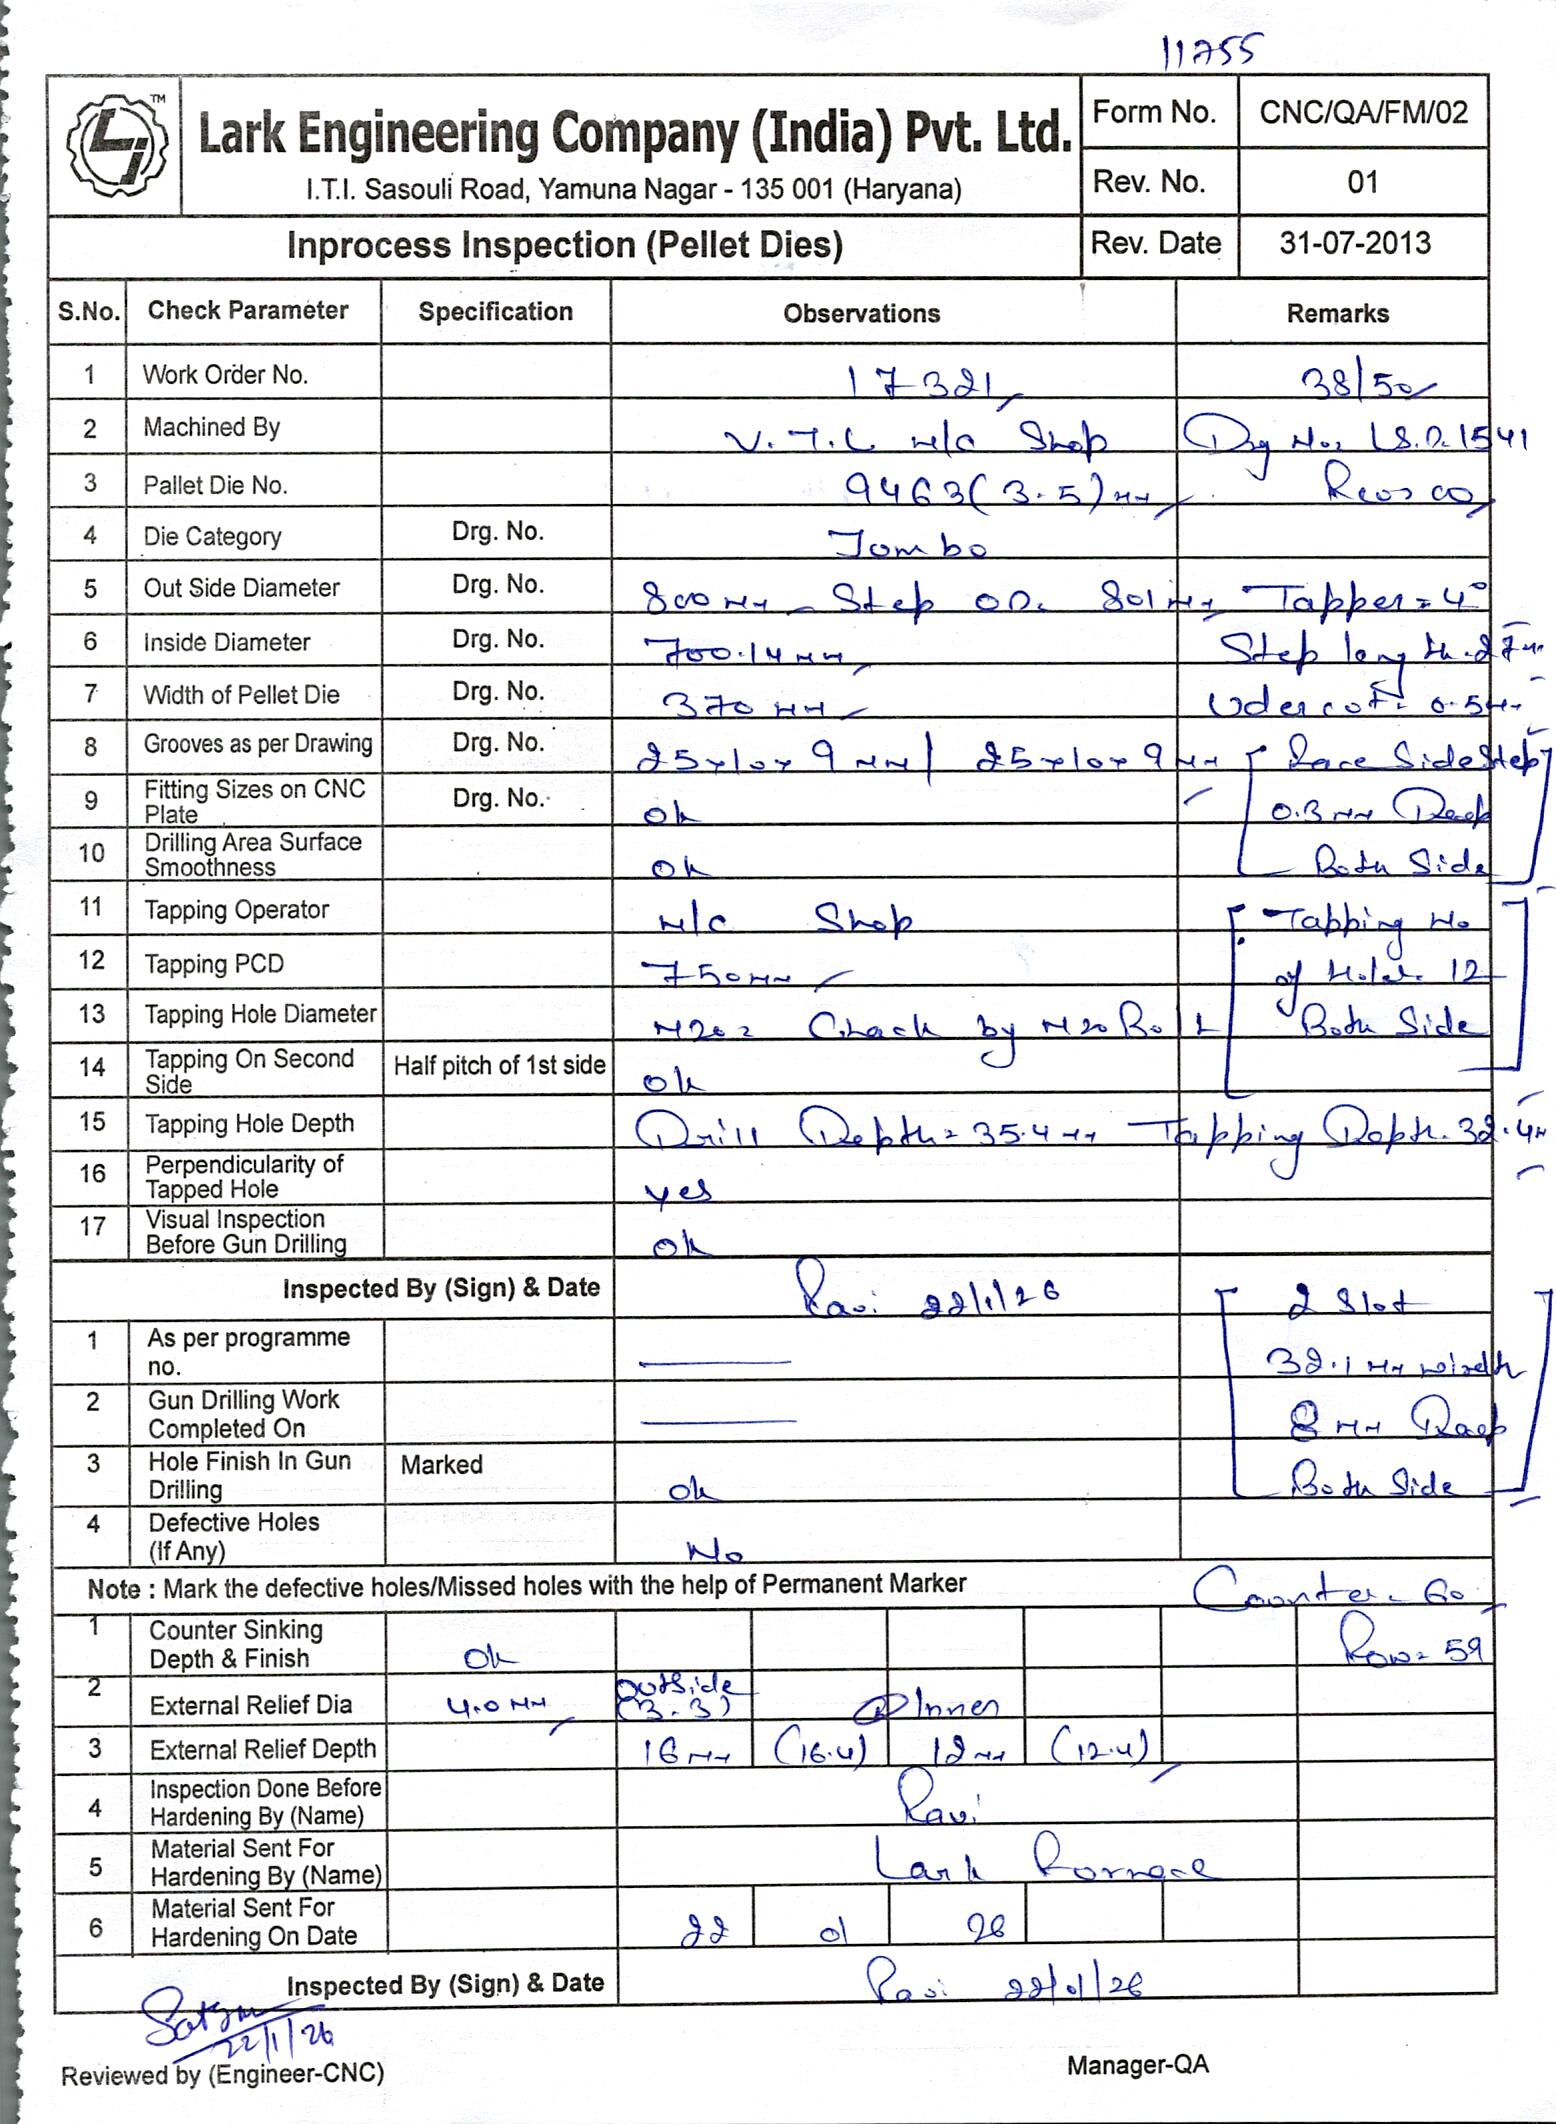 11755
Lark Engineering Company (India) Pvt. Ltd.
TM
I.T.I. Sasouli Road, Yamuna Nagar - 135 001 (Haryana)
Form No. CNC/QA/FM/02
Rev. No. 01
Inprocess Inspection (Pellet Dies) Rev. Date 31-07-2013
S.No. Check Parameter Specification Observations Remarks
1 Work Order No. 17321 38/50
2 Machined By V.T.L M/C Shop Drg No: LS.D.1541
3 Pallet Die No. 9463(3.5)mm
4 Die Category Drg. No. Jombo
5 Out Side Diameter Drg. No. 800mm - Step OD. 801mm Tapper = 4°
6 Inside Diameter Drg. No. 700.14mm Step length. 27mm
7 Width of Pellet Die Drg. No. 370mm Udercot = 0.5mm
8 Grooves as per Drawing Drg. No. 25x10x9mm | 25x10x9mm Race Side Step
9 Fitting Sizes on CNC Plate Drg. No. ok 0.3mm Deep
10 Drilling Area Surface Smoothness ok Both Side
11 Tapping Operator M/C Shop Tapping No
12 Tapping PCD 750mm of Holes. 12
13 Tapping Hole Diameter M20 = Chack by M20 Bolt Both Side
14 Tapping On Second Side Half pitch of 1st side ok
15 Tapping Hole Depth Drill Depth = 35.4mm Tapping Depth. 32.4m
16 Perpendicularity of Tapped Hole yes
17 Visual Inspection Before Gun Drilling ok
Inspected By (Sign) & Date Ravi 22/1/26 2 Slot
1 As per programme no. 32.1mm width
2 Gun Drilling Work Completed On 8mm Deep
3 Hole Finish In Gun Drilling Marked ok Both Side
4 Defective Holes (If Any) No
Note : Mark the defective holes/Missed holes with the help of Permanent Marker Counter - 60
1 Counter Sinking Depth & Finish ok Row = 59
2 External Relief Dia 4.0mm outside (3.3) Inner
3 External Relief Depth 16mm (16.4) 12mm (12.4)
4 Inspection Done Before Hardening By (Name) Ravi
5 Material Sent For Hardening By (Name) Lark Fornace
6 Material Sent For Hardening On Date 22 01 26
Inspected By (Sign) & Date Ravi 22/01/26
22/1/26
Reviewed by (Engineer-CNC) Manager-QA